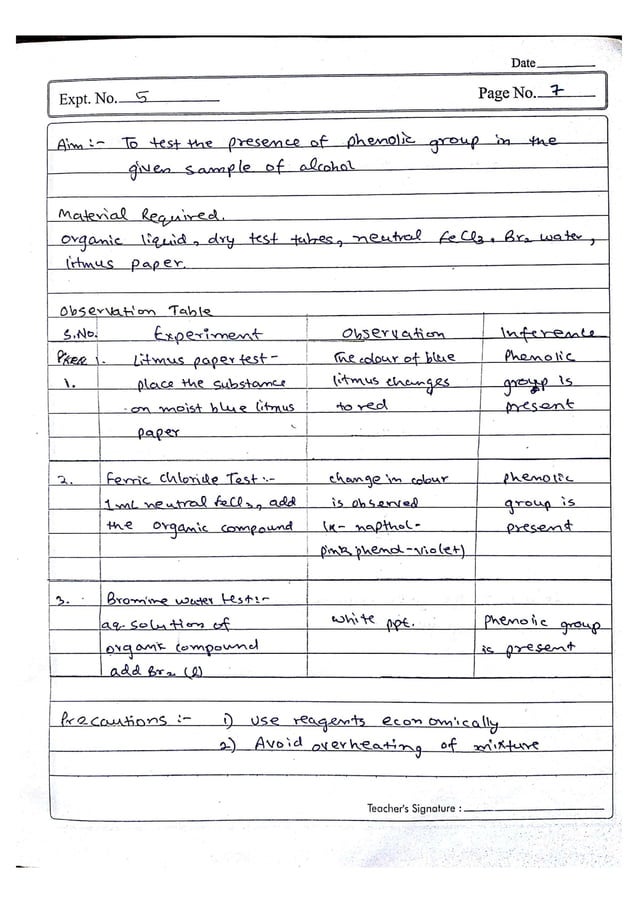 Date
Expt. No. 5
Page No. 7
Aim :- To test the presence of phenolic group in the
given sample of alcohol
Material Required.
organic liquid, dry test tubes, neutral FeCl3, Br2 water,
litmus paper.
Observation Table
S.No. Experiment Observation Inference
1. Litmus paper test - The colour of blue Phenolic
1. place the substance litmus changes group is
on moist blue litmus to red present
paper
2. Ferric Chloride Test :- change in colour phenolic
1mL neutral FeCl3, add is observed group is
the organic compound napthol - present
pink phenol - violet)
3. Bromine water test :-
aq. solution of white ppt. phenolic group
organic compound is present
add Br2 (l)
Precautions :- 1) use reagents economically
2) Avoid overheating of mixture
Teacher's Signature :